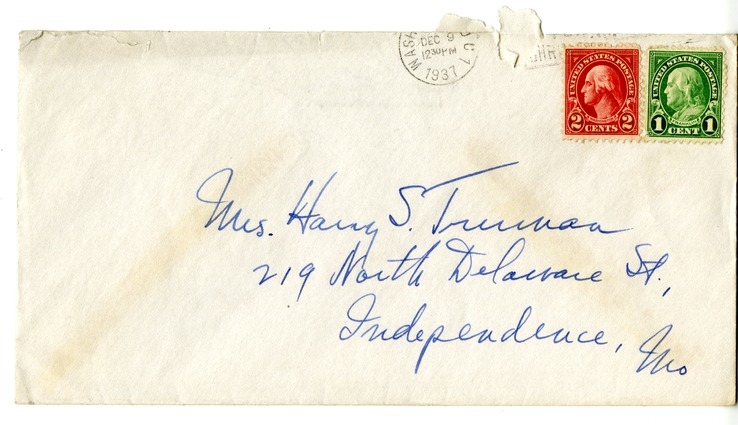 DEC 9
12 30 PM
1937
UNITED STATES POSTAGE
2 CENTS 2
UNITED STATES POSTAGE
1 CENT 1
Mrs. Harry S. Truman
219 North Delaware St.,
Independence, Mo